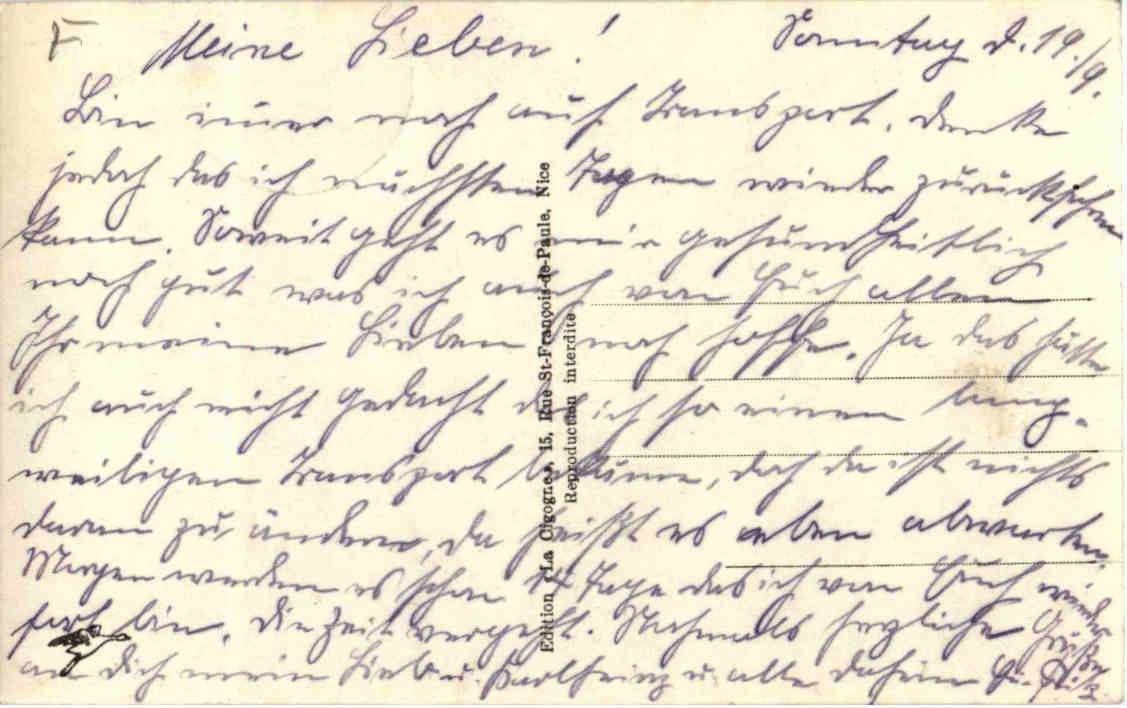 F Meine Lieben! Sonntag d. 19./9.
Bin imer noch auf Transport, denke
jedoch das ich nächsten Tagen wieder zurückfahren
kann. Soweit geht es mir gesundheitlich
noch gut was ich auch von Euch allen
Ihr meine Lieben noch hoffe. Ja das hätte
ich auch nicht gedacht das ich so einen lang-
weiligen Transport bekäme, doch da ist nichts
daran zu ändern, da heißt es eben abwarten.
Morgen werden es schon 14 Tage das ich von Euch wieder
fort bin, die Zeit vergeht. Nochmals herzliche Grüße
an Dich mein Lieb u. Karlheinz u. alle daheim
Edition «La Cigogne», 15, Rue St-François-de-Paule, Nice
Reproduction interdite